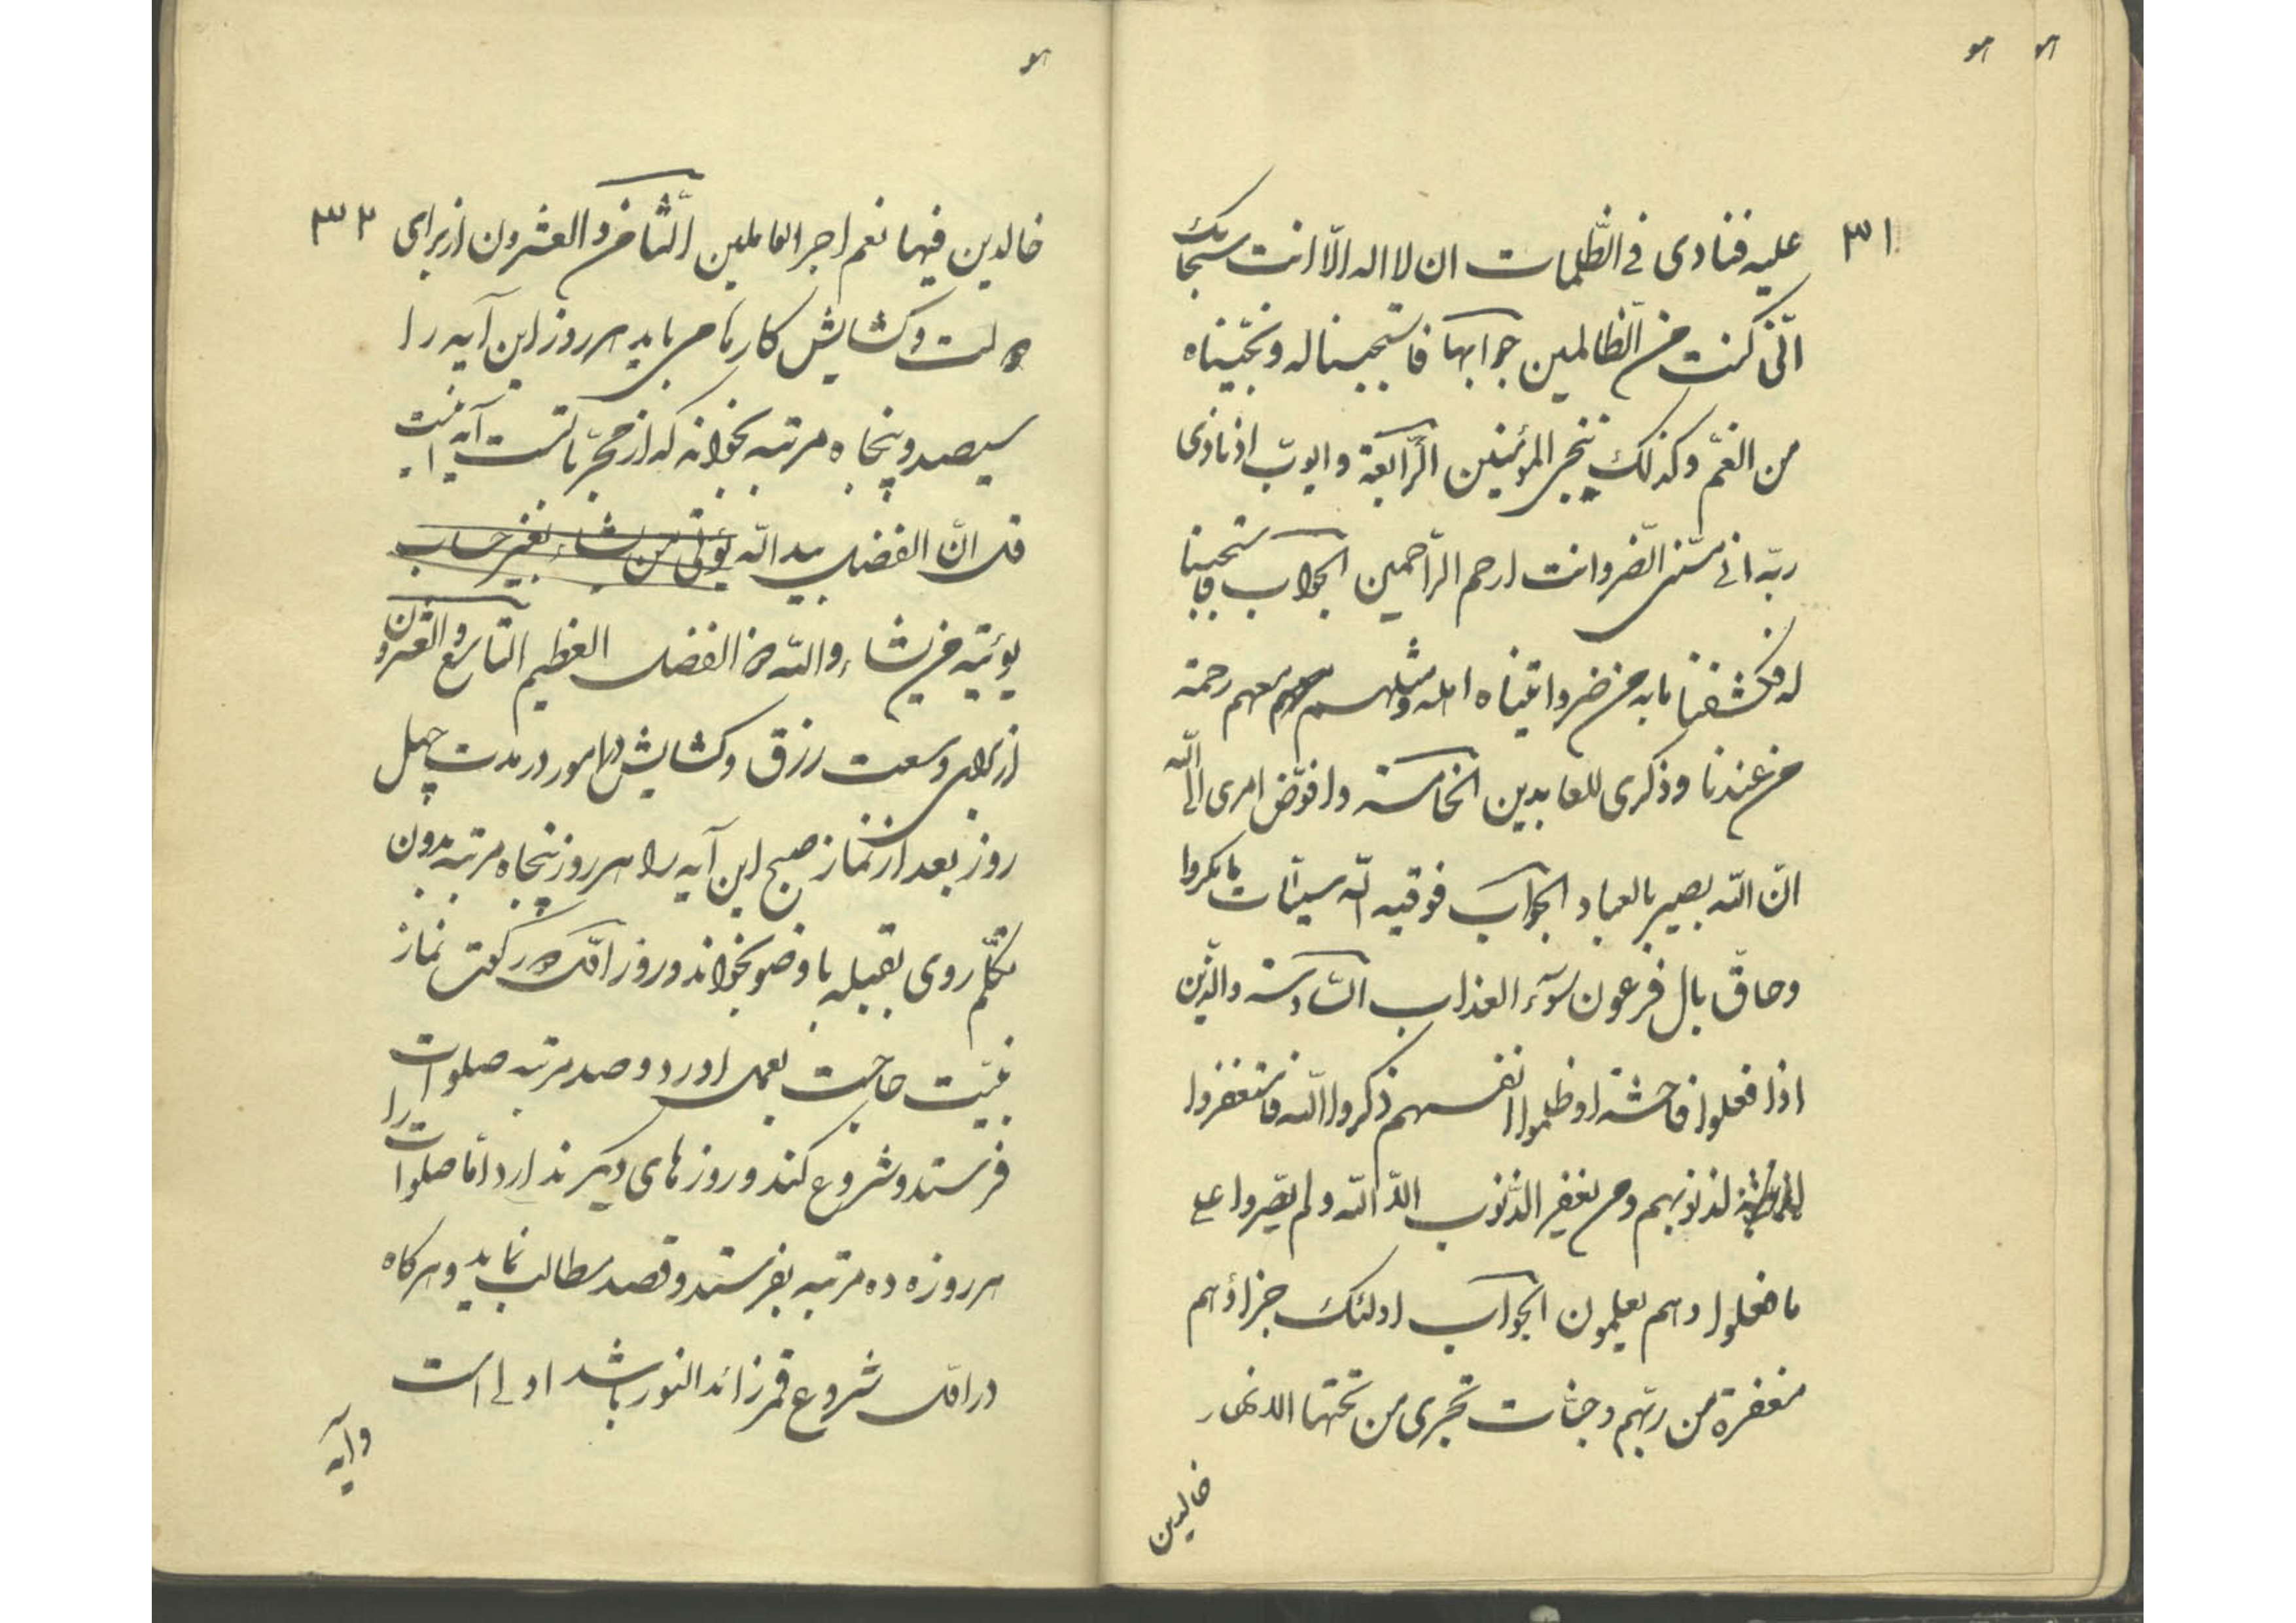 هو هو
۳۱
علیه فنادی فی الظّلمات ان لا اله الّا انت سبحانک
انّی کنت من الظّالمین جوابها فاستجبنا له ونجّیناه
من الغمّ وکذلک ننجی المؤمنین الرّابعة وایوب اذ نادی
ربّه انی مسّنی الضّر وانت ارحم الرّاحمین الجواب فاستجبنا
له فکشفنا ما به من ضر واتیناه اهله ومثلهم معهم رحمة
من عندنا وذکری للعابدین الخامسة وافوّض امری الی اللّه
انّ اللّه بصیر بالعباد الجواب فوقیه اللّه سیّئات ما مکروا
وحاقّ بال فرعون سوٓء العذاب السّادسة والّذین
اذا فعلوا فاحشة او ظلموا انفسهم ذکروا اللّه فاستغفروا
لذنوبهم ومن یغفر الذّنوب الّا اللّه ولم یصّروا علی
ما فعلوا وهم یعلمون الجواب اولئک جزاؤهم
مغفرة من ربّهم وجنّات تجری من تحتها الانهار
خالدین
هو
۳۲
خالدین فیها نعم اجر العاملین الثّامن والعشرون از برای
وکشایش کارها می باید هر روز این آیه را
سیصد وپنجاه مرتبه بخواند که از مجرّباتست آیه اینست
قل انّ الفضل بید اللّه یؤتی من یشاء بغیر حساب
یوئتیه من یشاء واللّه ذو الفضل العظیم التاسع والعشرون
از برای وسعت رزق وکشایش در امور در مدت چهل
روز بعد از نماز صبح این آیه را هر روز پنجاه مرتبه بدون
تکلّم روی بقبله با وضو بخواند وروز اوّل دو رکعت نماز
بنیّت حاجت بعمل اورد وصد مرتبه صلوات را
فرستد وشروع کند وروزهای دیکر ندارد امّا صلوات
هر روزه ده مرتبه بفرستد وقصد مطالب نماید وهر کاه
در اوّل شروع قمر زائد النور باشد اولی است
وآیه